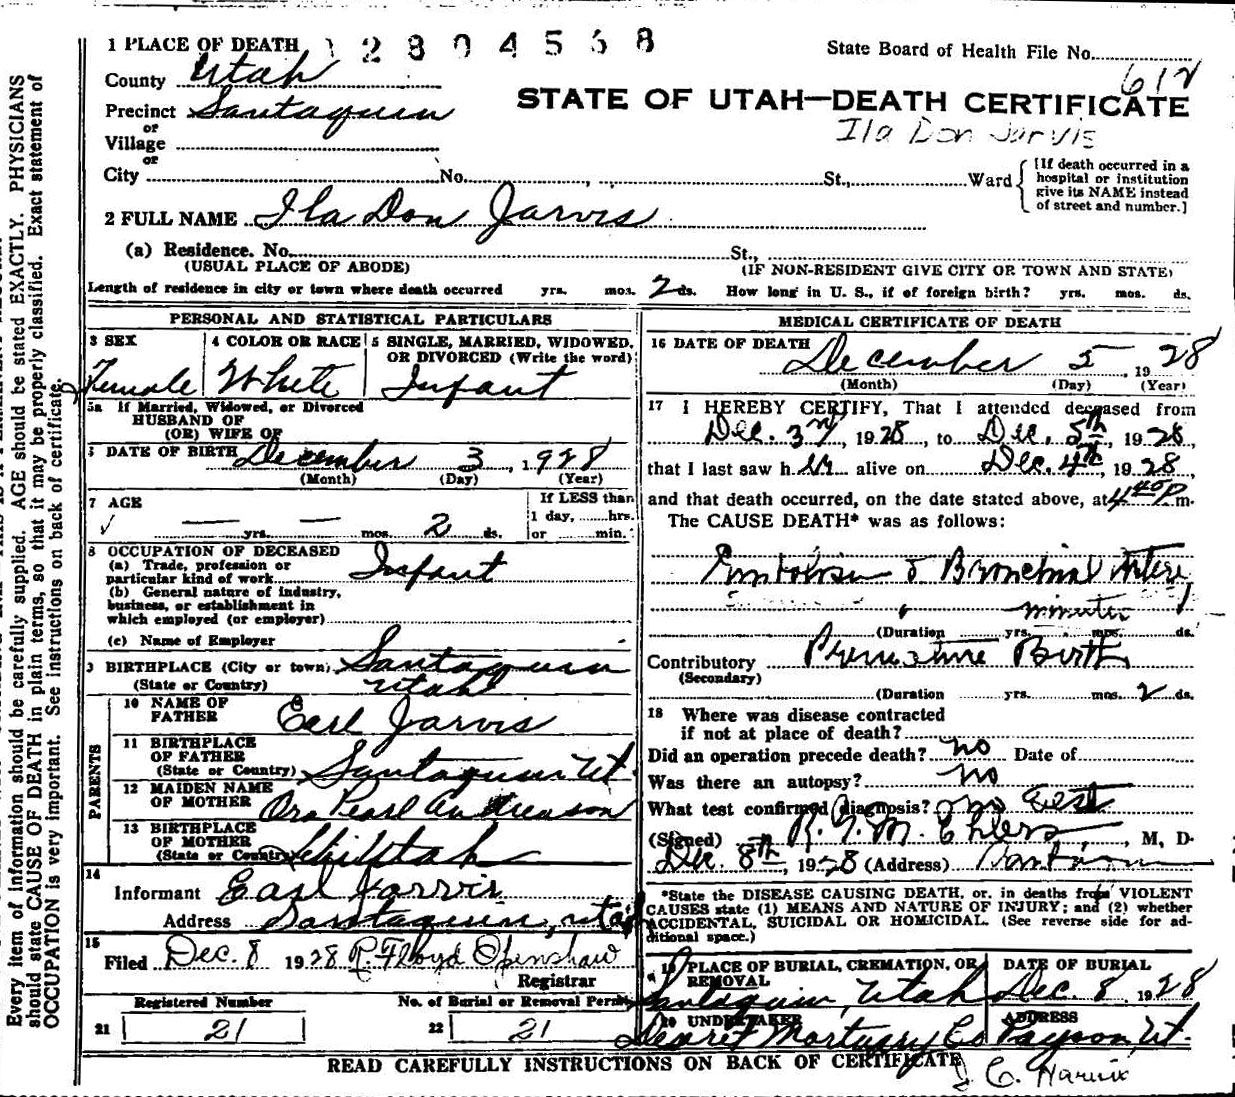 1 PLACE OF DEATH
State Board of Health File No.
612
County Utah
STATE OF UTAH—DEATH CERTIFICATE
Precinct Santaquin
Ila Don Jarvis
or
Village
or
City No. , , St., Ward
[If death occurred in a hospital or institution give its NAME instead of street and number.]
2 FULL NAME Ila Don Jarvis
(a) Residence. No. St.,
(USUAL PLACE OF ABODE) (IF NON-RESIDENT GIVE CITY OR TOWN AND STATE)
Length of residence in city or town where death occurred yrs. mos. 2 ds. How long in U. S., if of foreign birth? yrs. mos. ds.
PERSONAL AND STATISTICAL PARTICULARS
3 SEX
Female
4 COLOR OR RACE
White
5 SINGLE, MARRIED, WIDOWED,
OR DIVORCED (Write the word)
Infant
5a If Married, Widowed, or Divorced
HUSBAND OF
(OR) WIFE OF
DATE OF BIRTH December 3, 1928
(Month) (Day) (Year)
7 AGE
— yrs. — mos. 2 ds.
If LESS than
1 day, hrs.
or min.
8 OCCUPATION OF DECEASED
(a) Trade, profession or
particular kind of work Infant
(b) General nature of industry,
business, or establishment in
which employed (or employer)
(c) Name of Employer
BIRTHPLACE (City or town) Santaquin
(State or Country) Utah
PARENTS
10 NAME OF
FATHER Earl Jarvis
11 BIRTHPLACE
OF FATHER
(State or Country) Santaquin Ut.
12 MAIDEN NAME
OF MOTHER Ora Pearl Andreason
13 BIRTHPLACE
OF MOTHER
(State or Country) Utah
14
Informant Earl Jarvis
Address Santaquin, Utah
15
Filed Dec. 8 1928 R. Floyd Openshaw
Registrar
Registered Number No. of Burial or Removal Permit
21 21 22 21
MEDICAL CERTIFICATE OF DEATH
16 DATE OF DEATH
December 5, 1928
(Month) (Day) (Year)
17 I HEREBY CERTIFY, That I attended deceased from
Dec. 3rd, 1928, to Dec. 5th, 1928,
that I last saw her alive on Dec. 4th, 1928,
and that death occurred, on the date stated above, at 4 40 P m.
The CAUSE DEATH* was as follows:
Embolism Bronchial
minutes
(Duration yrs. mos. ds.
Contributory Premature Birth
(Secondary)
(Duration yrs. mos. 2 ds.
18 Where was disease contracted
if not at place of death?
Did an operation precede death? no Date of
Was there an autopsy? no
What test confirmed diagnosis? no test
(Signed) M. Ehlers, M, D.
Dec. 8th, 1928 (Address) Santaquin
*State the DISEASE CAUSING DEATH, or, in deaths from VIOLENT
CAUSES state (1) MEANS AND NATURE OF INJURY; and (2) whether
ACCIDENTAL, SUICIDAL OR HOMICIDAL. (See reverse side for ad-
ditional space.)
19 PLACE OF BURIAL, CREMATION, OR
REMOVAL
Santaquin, Utah
DATE OF BURIAL
Dec. 8 1928
20 UNDERTAKER
Deseret Mortuary Co
ADDRESS
Payson, Ut.
READ CAREFULLY INSTRUCTIONS ON BACK OF CERTIFICATE
Every item of information should be carefully supplied. AGE should be stated EXACTLY. PHYSICIANS
should state CAUSE OF DEATH in plain terms, so that it may be properly classified. Exact statement of
OCCUPATION is very important. See instructions on back of certificate.